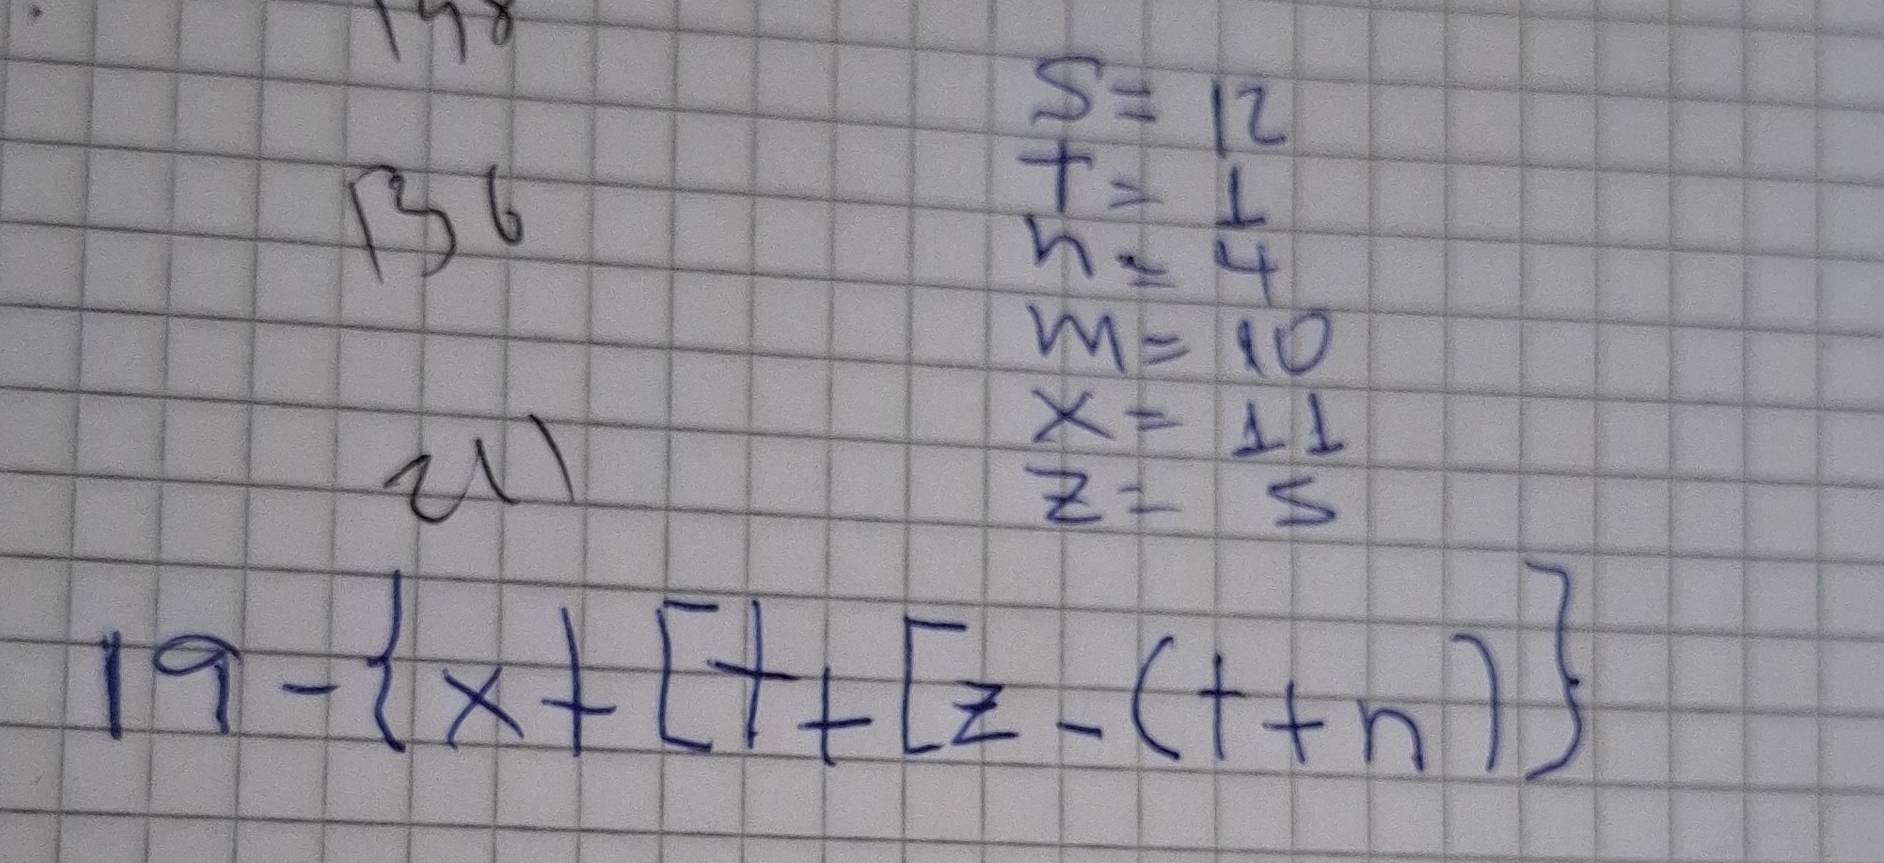 136
211
S = 12
t = 1
n = 4
m = 10
x = 11
z = 5
19 - { x + [ t + [ z - ( t + n ) }